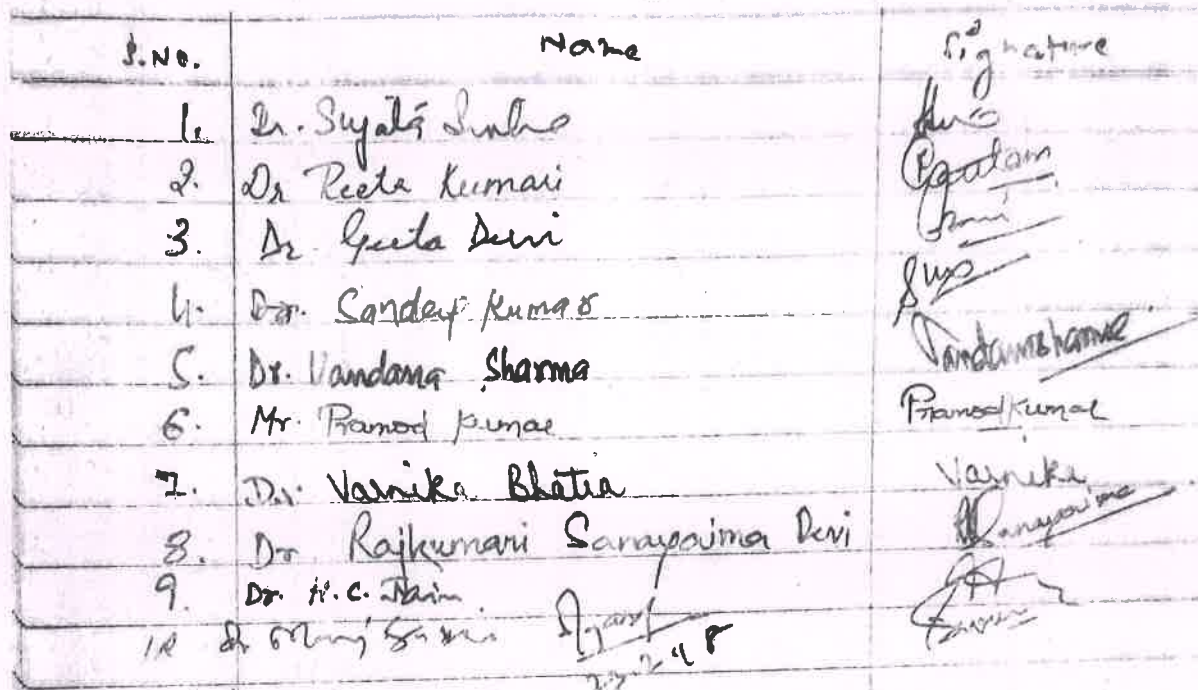 S.No. Name Signature
1. Dr. Sujata Sinha
2. Dr Reeta Kumari Gautam
3. Dr. Geeta Devi
4. Dr. Sandeep Kumar
5. Dr. Vandana Sharma Vandana Sharma
6. Mr. Pramod Kumar Pramod Kumar
7. Dr. Varnika Bhatia Varnika
8. Dr Rajkumari Sanayaima Devi Sanayaima
9. Dr. H.C. Jain
10 Dr